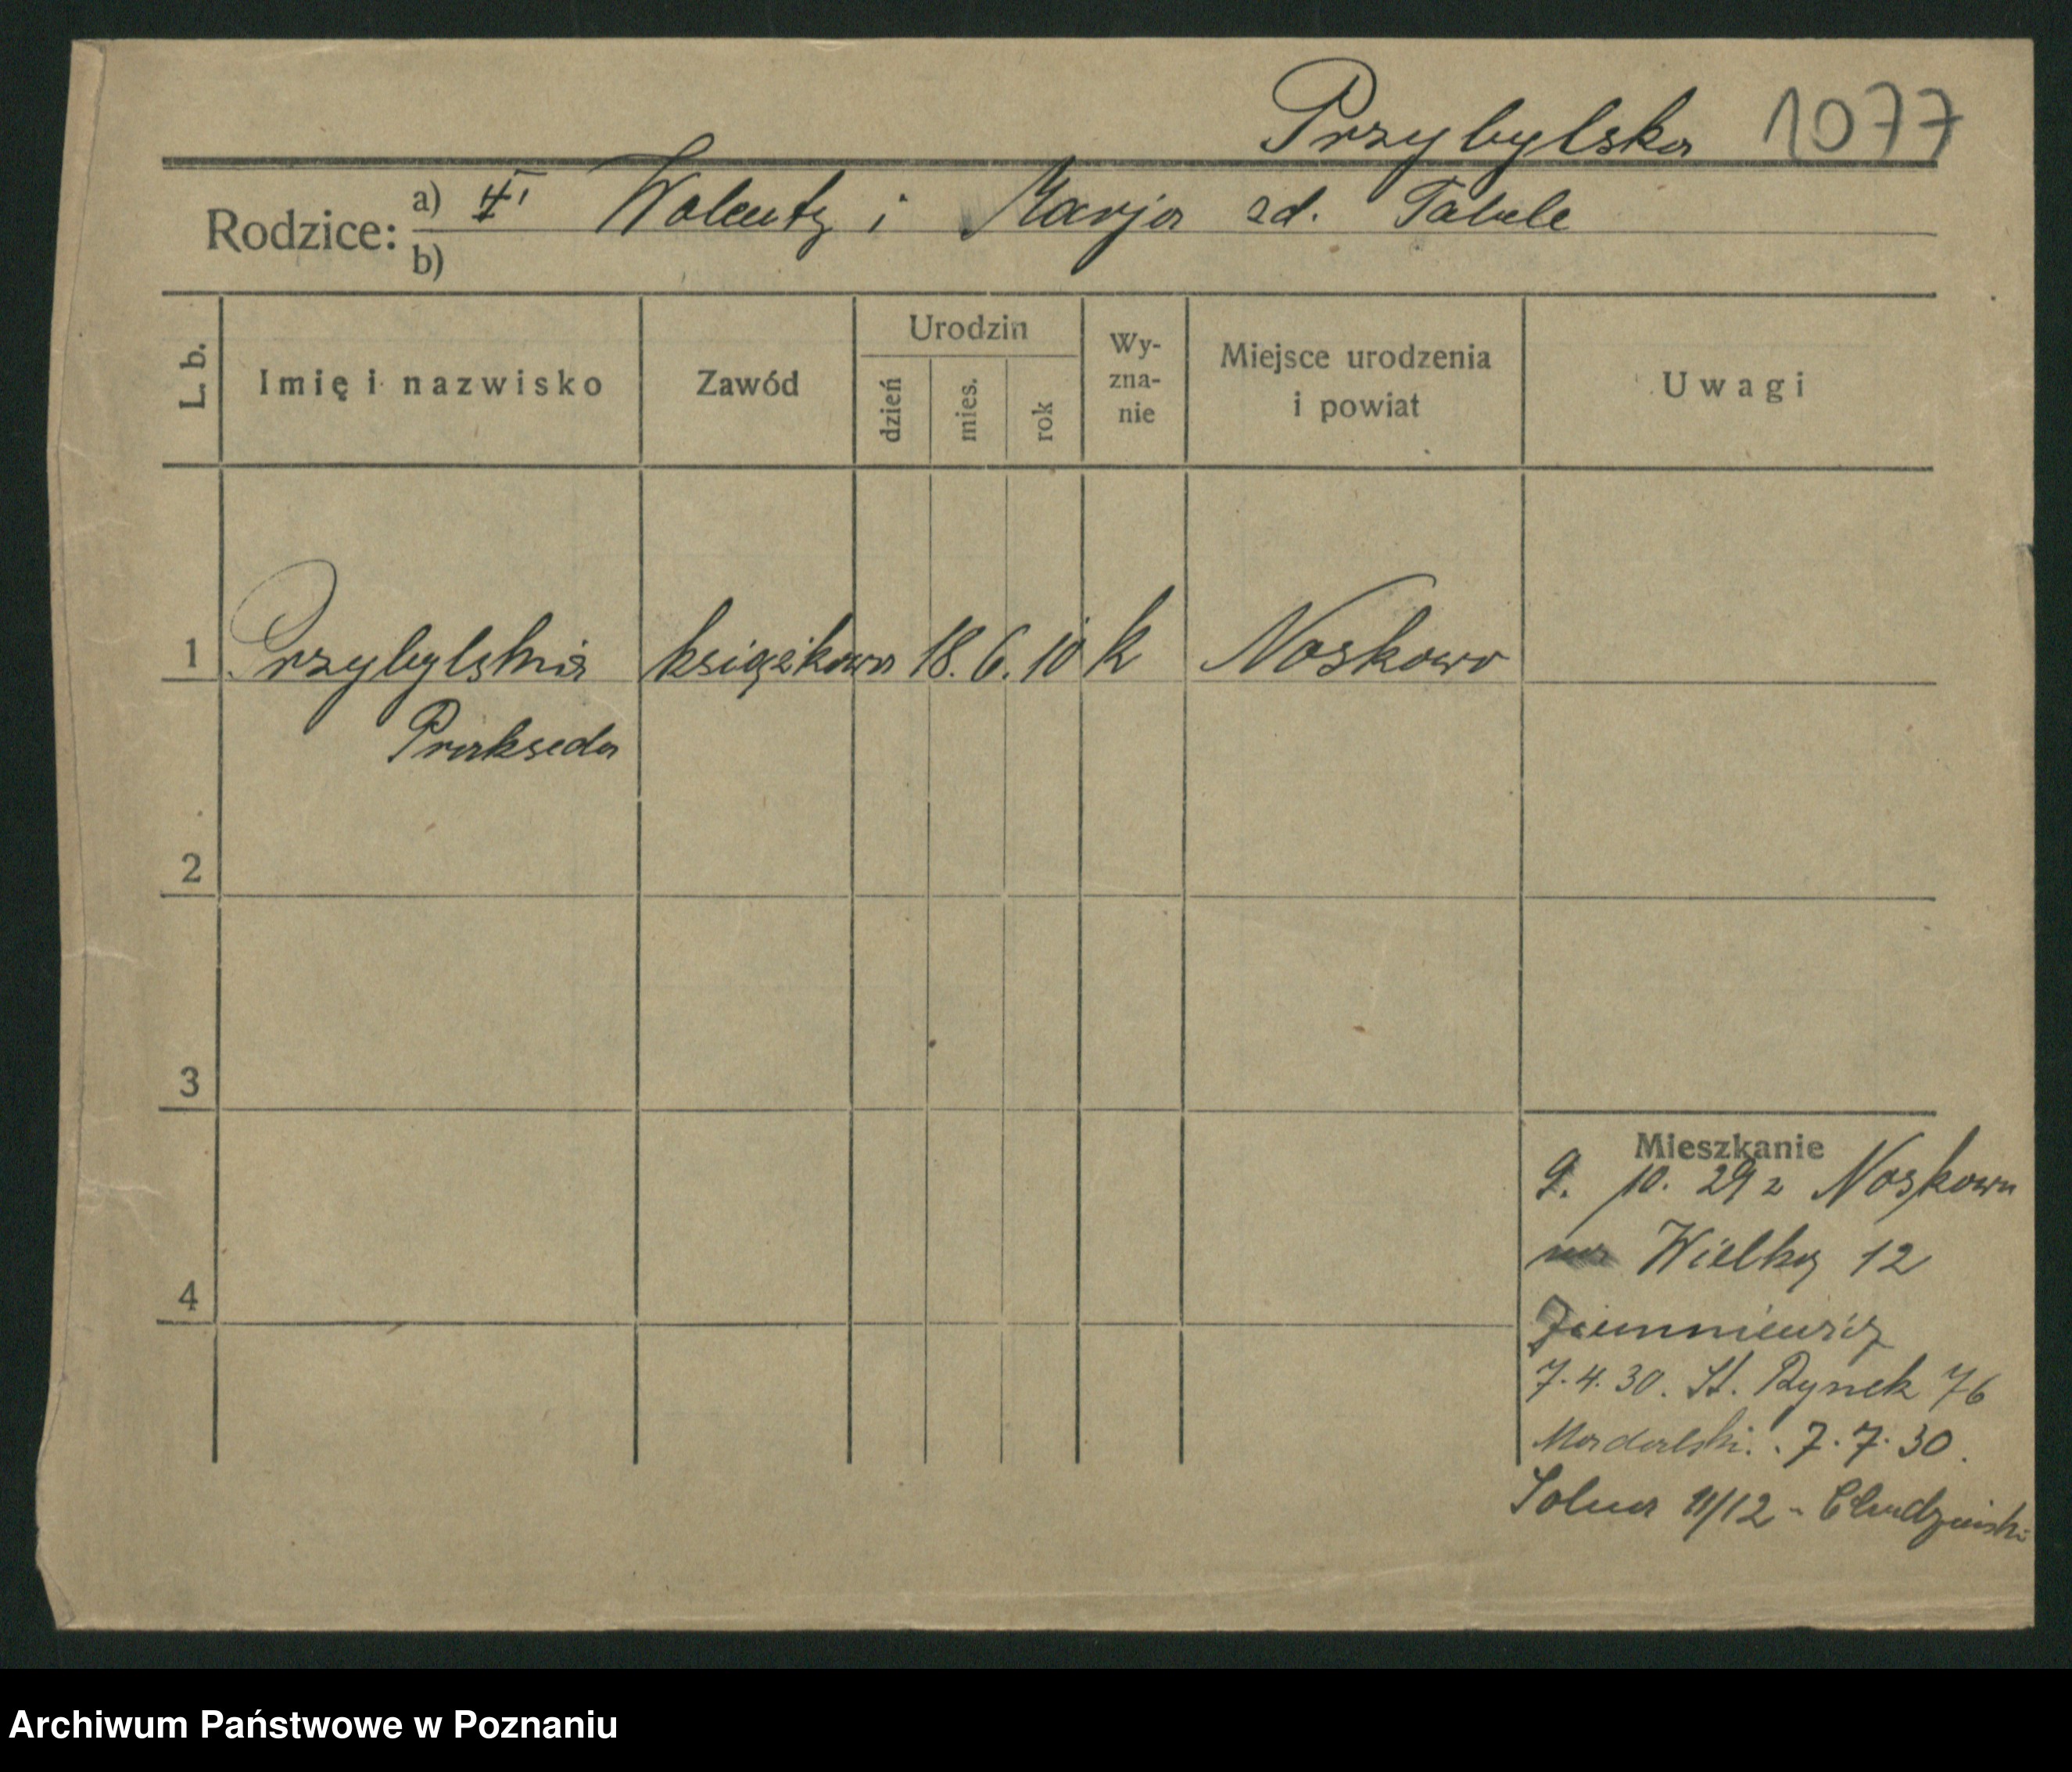 Przybylska 1077
Rodzice: a) Walenty i Marja zd. Tabele
b)
L. b. Imię i nazwisko Zawód Urodzin dzień mies. rok Wy-zna-nie Miejsce urodzenia i powiat Uwagi
1 Przybylska książkowa 18. 6. 10 k Noskowo
Prakseda
2
3
Mieszkanie
9. 10. 29 z Noskowa
na Wielką 12
4
7. 4. 30. St. Rynek 76
7. 7. 30.
Solna 11/12 -
Archiwum Państwowe w Poznaniu